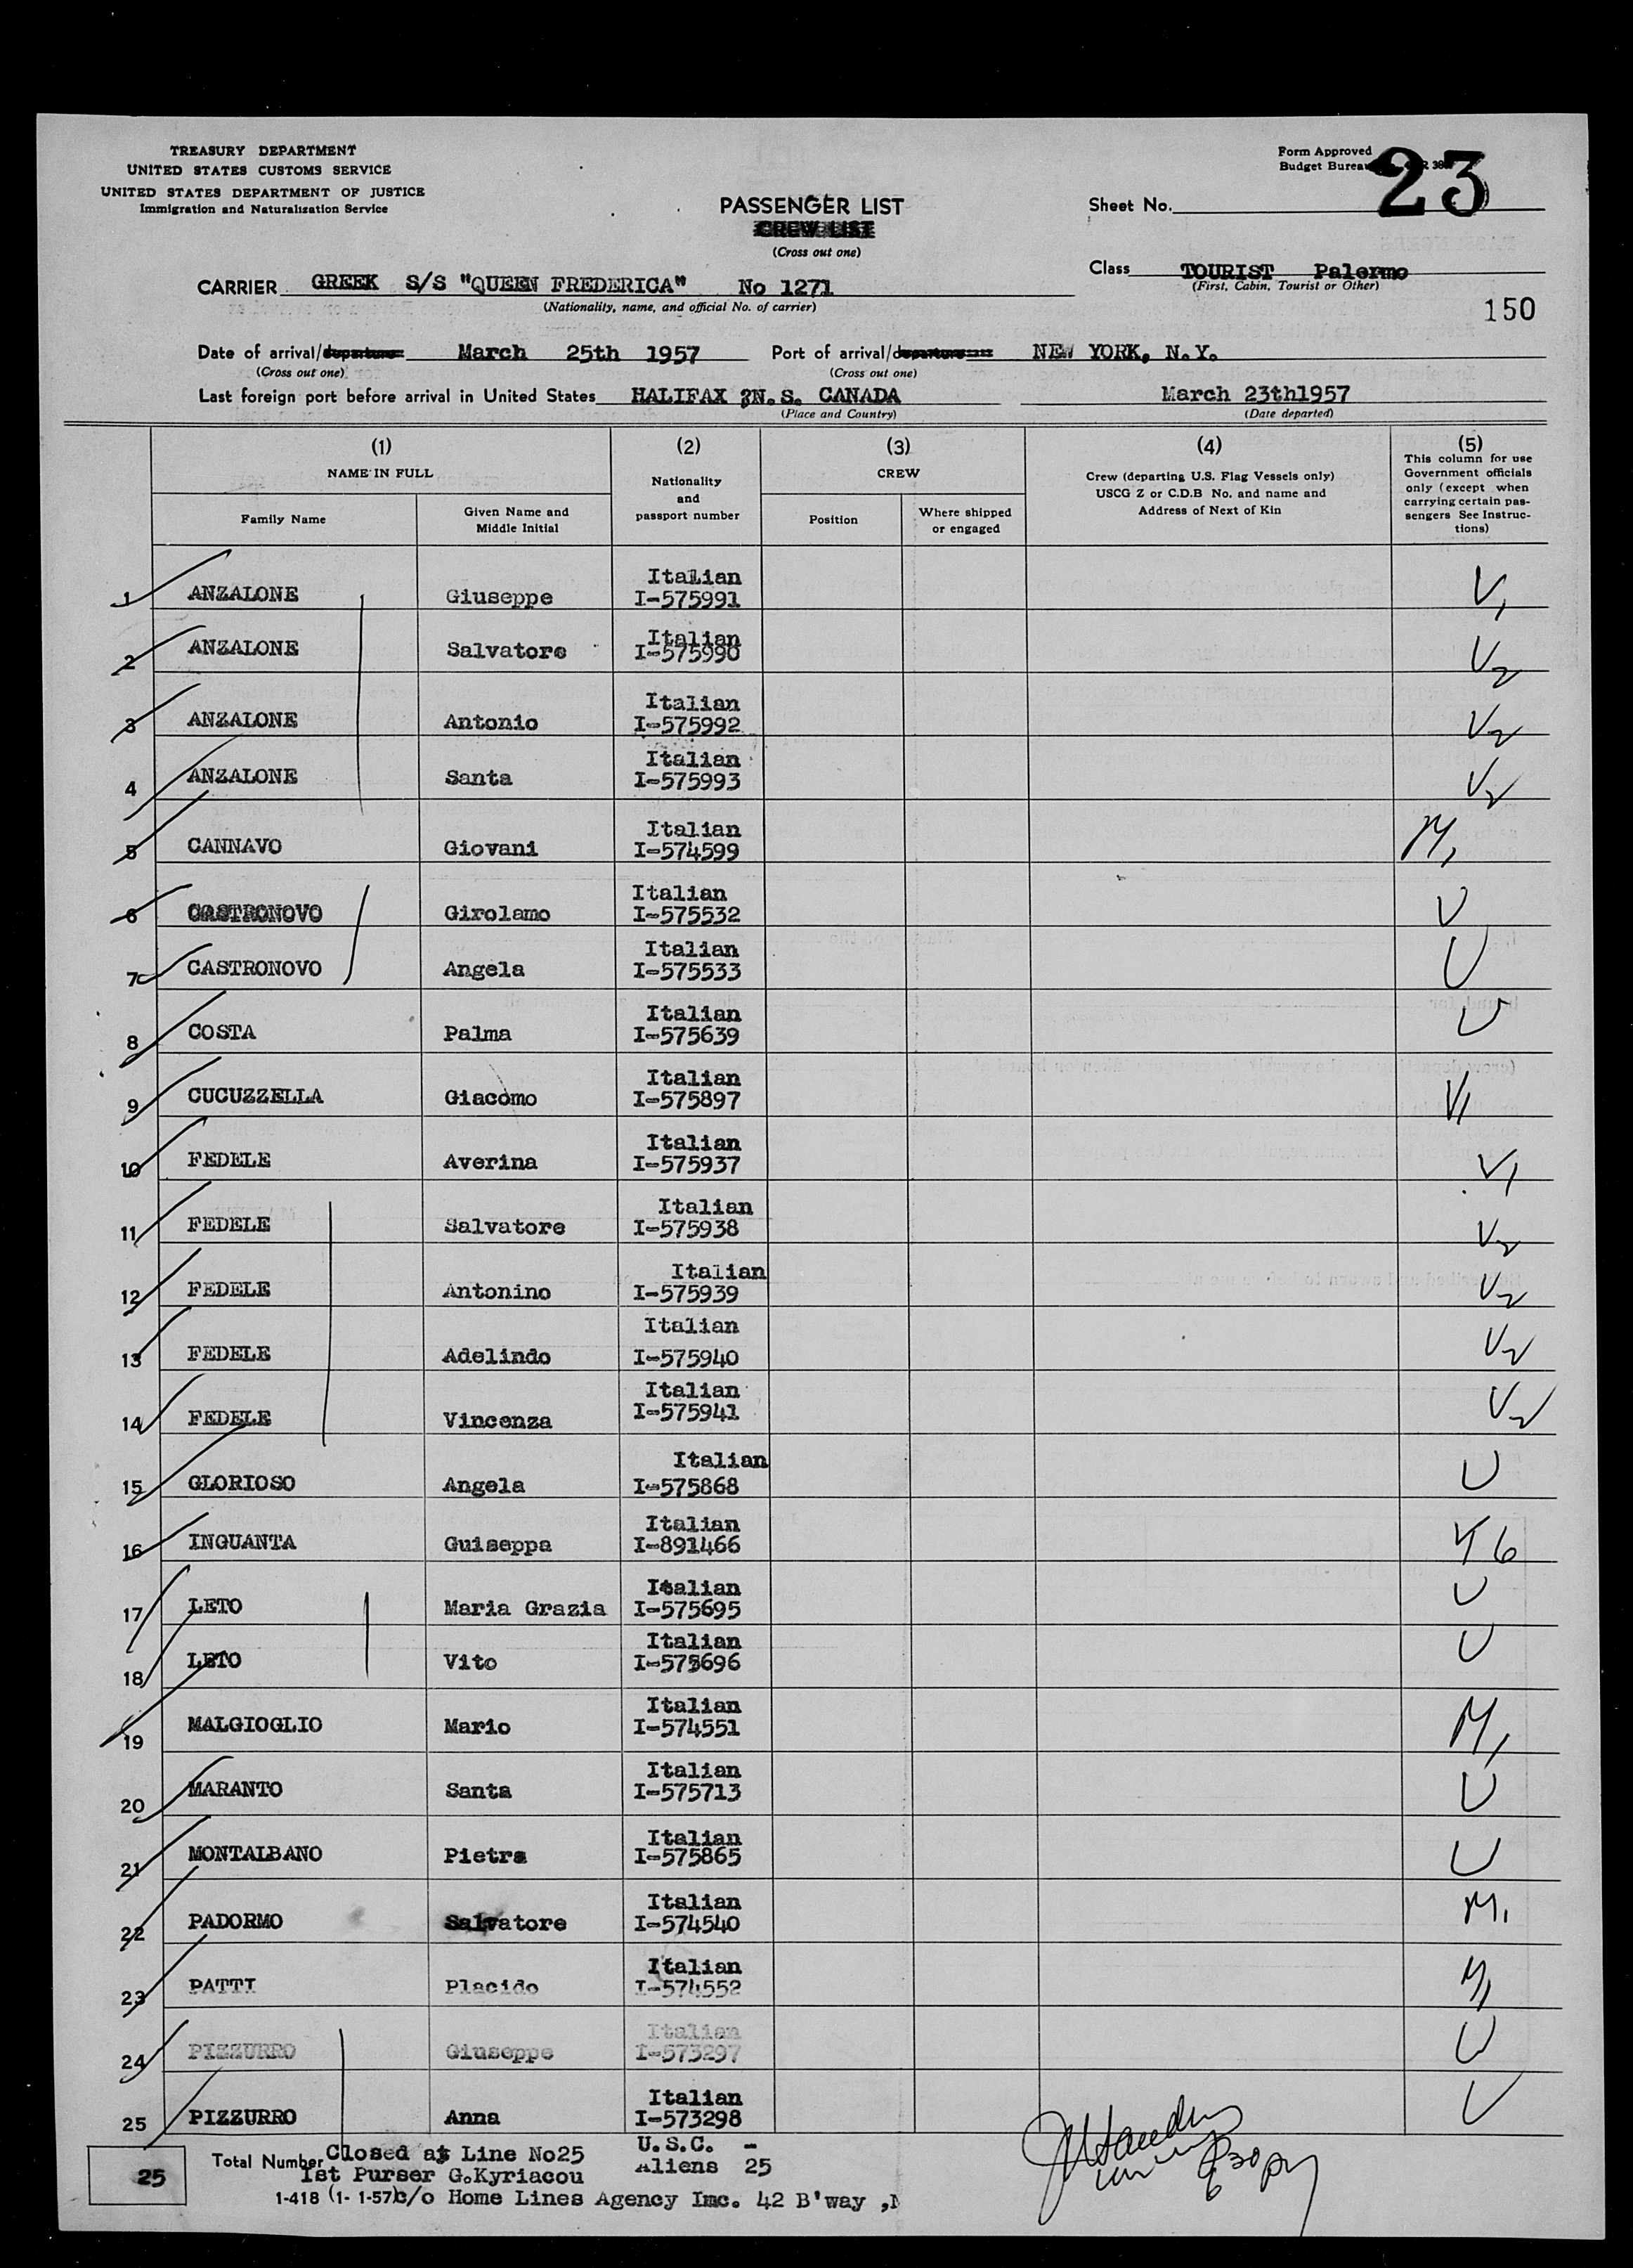 TREASURY DEPARTMENT
UNITED STATES CUSTOMS SERVICE
UNITED STATES DEPARTMENT OF JUSTICE
Immigration and Naturalization Service
Form Approved
Budget Bureau
23
PASSENGER LIST
CREW LIST
(Cross out one)
Sheet No.
Class TOURIST Palermo
(First, Cabin, Tourist or Other)
150
CARRIER GREEK S/S "QUEEN FREDERICA" No 1271
(Nationality, name, and official No. of carrier)
Date of arrival/departure March 25th 1957 Port of arrival/departure NEW YORK, N.Y.
(Cross out one) (Cross out one)
Last foreign port before arrival in United States HALIFAX N.S. CANADA March 23th1957
(Place and Country) (Date departed)
(1) (2) (3) (4) (5)
NAME IN FULL
Family Name
Given Name and Middle Initial
Nationality and passport number
CREW
Position
Where shipped or engaged
Crew (departing U.S. Flag Vessels only)
USCG Z or C.D.B No. and name and
Address of Next of Kin
This column for use
Government officials
only (except when
carrying certain pas-
sengers See Instruc-
tions)
1 ANZALONE Giuseppe Italian I-575991 V1
2 ANZALONE Salvatore Italian I-575990 V2
3 ANZALONE Antonio Italian I-575992 V2
4 ANZALONE Santa Italian I-575993 V2
5 CANNAVO Giovani Italian I-574599 M1
6 CASTRONOVO Girolamo Italian I-575532 U
7 CASTRONOVO Angela Italian I-575533 U
8 COSTA Palma Italian I-575639 U
9 CUCUZZELLA Giacomo Italian I-575897 V1
10 FEDELE Averina Italian I-575937 V1
11 FEDELE Salvatore Italian I-575938 V2
12 FEDELE Antonino Italian I-575939 V2
13 FEDELE Adelindo Italian I-575940 V2
14 FEDELE Vincenza Italian I-575941 V2
15 GLORIOSO Angela Italian I-575868 U
16 INGUANTA Guiseppa Italian I-891466
17 LETO Maria Grazia Italian I-575695 U
18 LETO Vito Italian I-575696 U
19 MALGIOGLIO Mario Italian I-574551 M1
20 MARANTO Santa Italian I-575713 U
21 MONTALBANO Pietra Italian I-575865 U
22 PADORMO Salvatore Italian I-574540 M1
23 PATTI Placido Italian I-574552 M1
24 PIZZURRO Giuseppe Italian I-573297 U
25 PIZZURRO Anna Italian I-573298 U
25
Total Number Closed at Line No25 U.S.C. -
1st Purser G.Kyriacou Aliens 25
I-418 (1-1-57) c/o Home Lines Agency Inc. 42 B'way ,N